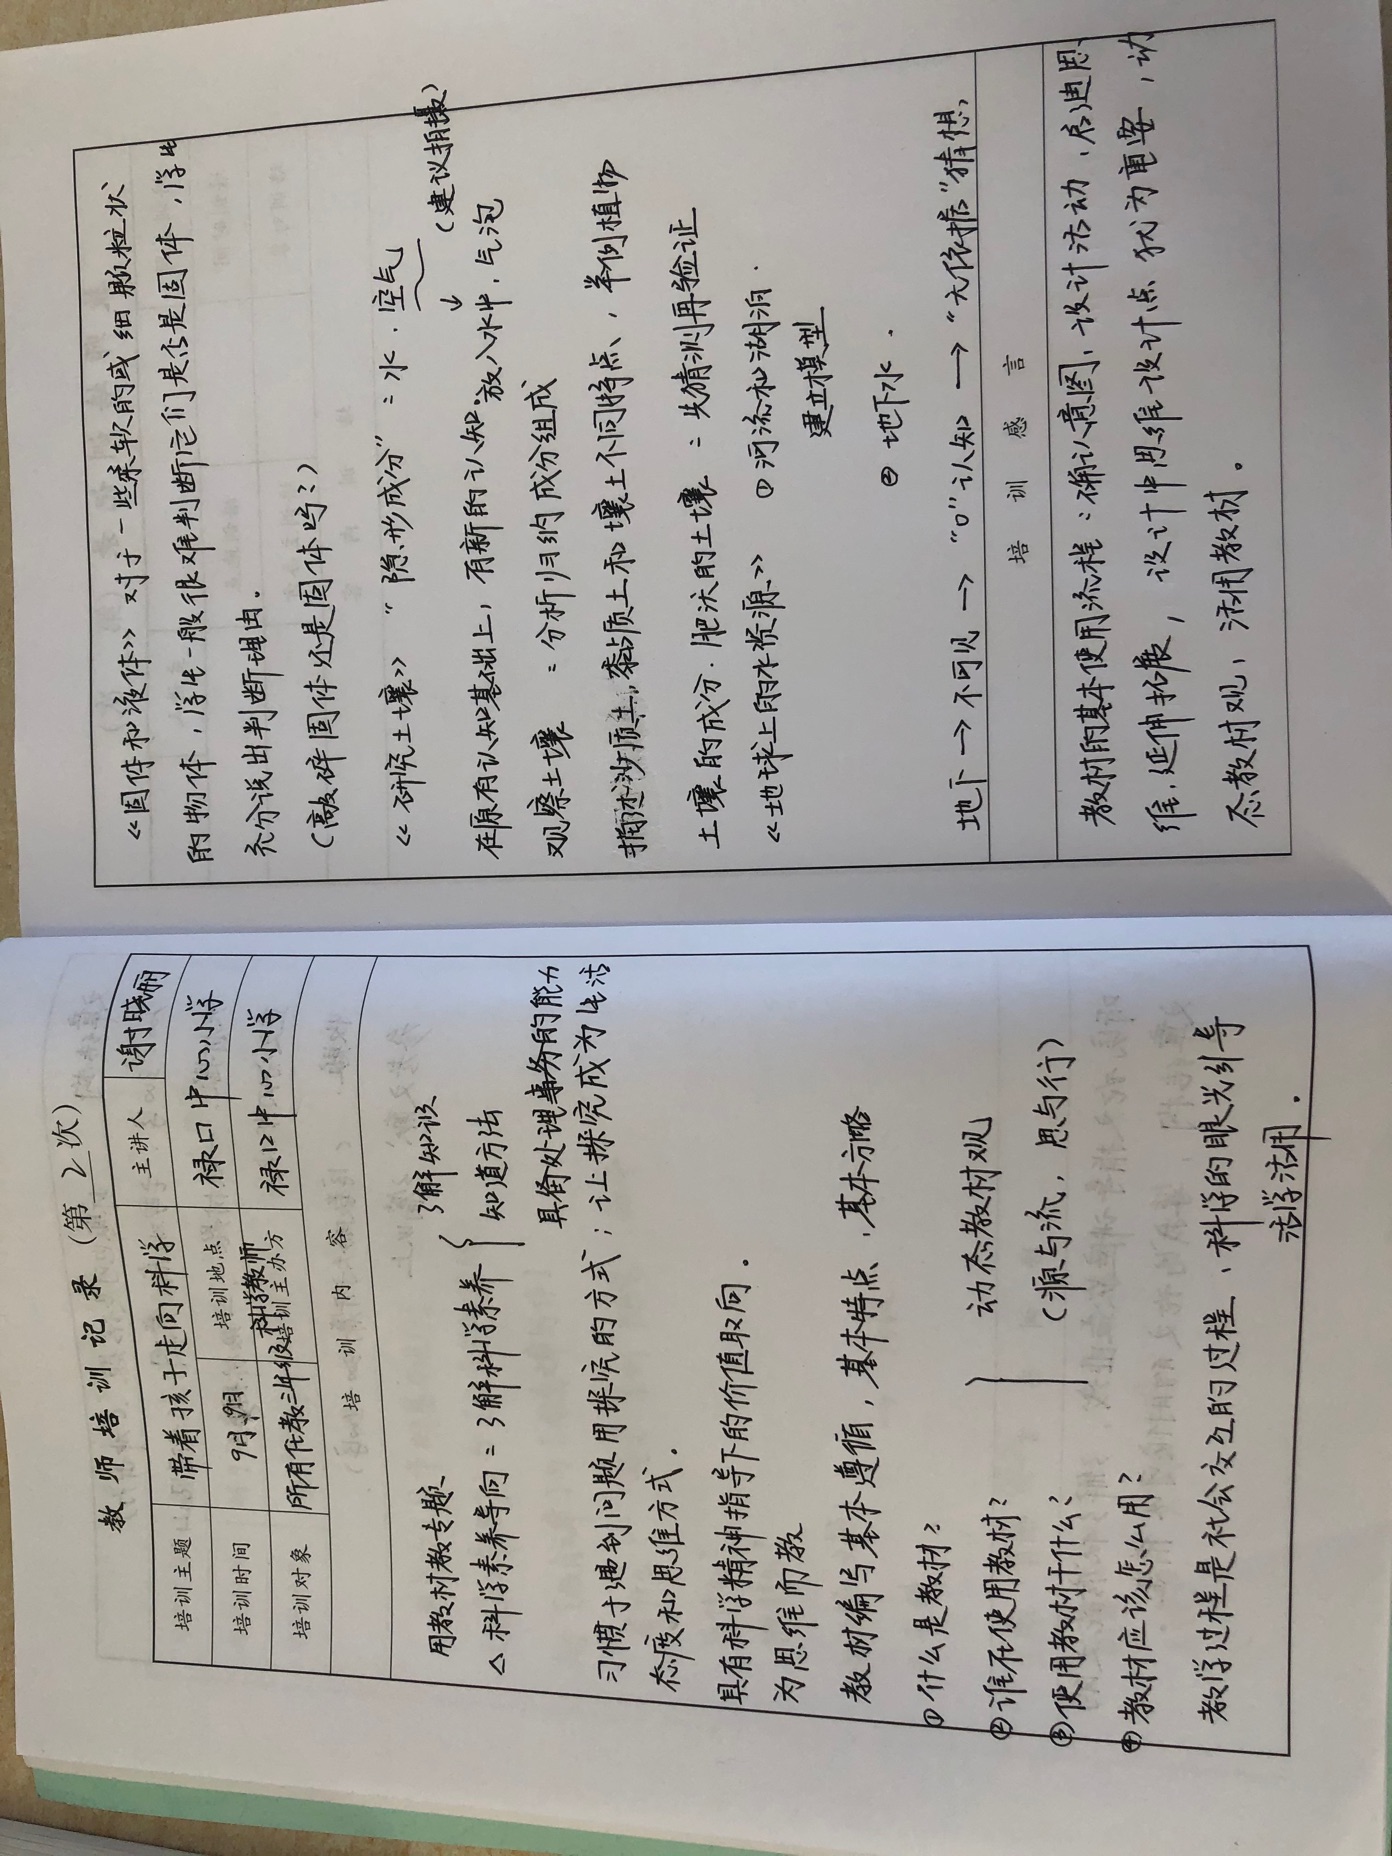 教师培训记录（第 2 次）
培训主题 带着孩子走向科学 主讲人 谢晓丽
培训时间 9月9日 培训地点 禄口中心小学
培训对象 所有任教三年级科学教师 培训主办方 禄口中心小学
培训内容
用教材教专题
△ 科学素养导向：了解科学素养 { 了解知识
知道方法
具备处理事务的能力
习惯于遇到问题用探究的方式；让探究成为生活
态度和思维方式.
具有科学精神指导下的价值取向.
为思维而教
教材编写基本遵循，基本特点，基本方略
①什么是教材？
②谁在使用教材？
③使用教材干什么？
④教材应该怎么用？
动态教材观
（源与流，思与行）
教学过程是社会交互的过程，科学的眼光引导
活学活用.
《固体和液体》对于一些柔软的或细颗粒状
的物体，学生一般很难判断它们是否是固体，学生
充分说出判断理由.
（敲碎固体还是固体吗？）
《研究土壤》“隐形成分”：水.空气
（建议拍摄）
在原有认知基础上，有新的认知. ↓ 放入水中，气泡
观察土壤：分析归纳成分组成
描述沙质土，黏质土和壤土不同特点，举例植物
土壤的成分.肥沃的土壤：先猜测再验证
《地球上的水资源》 ①河流和湖泊.
建立模型
②地下水.
地下→不可见→“0”认知→“无依据”猜想
培训感言
教材的基本使用流程：确认意图，设计活动，启迪思
维，延伸拓展，设计中思维设计点犹为重要，动
态教材观，活用教材。